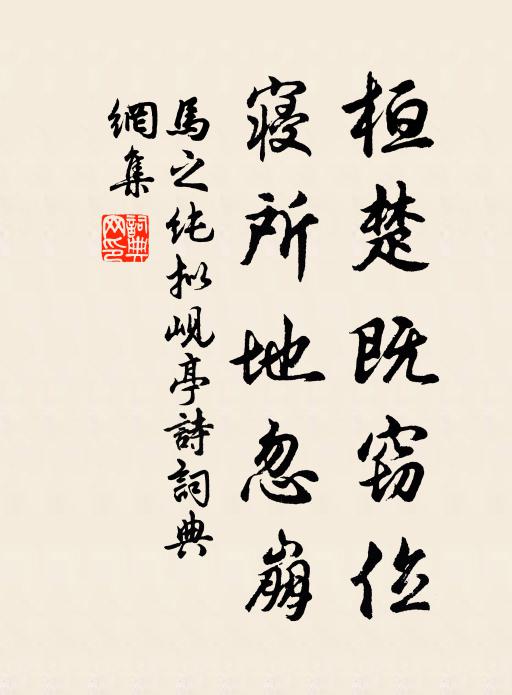 桓楚既窃位
寝所地忽崩
馬之纯拟峴亭詩詞典
網集
詞典
网印